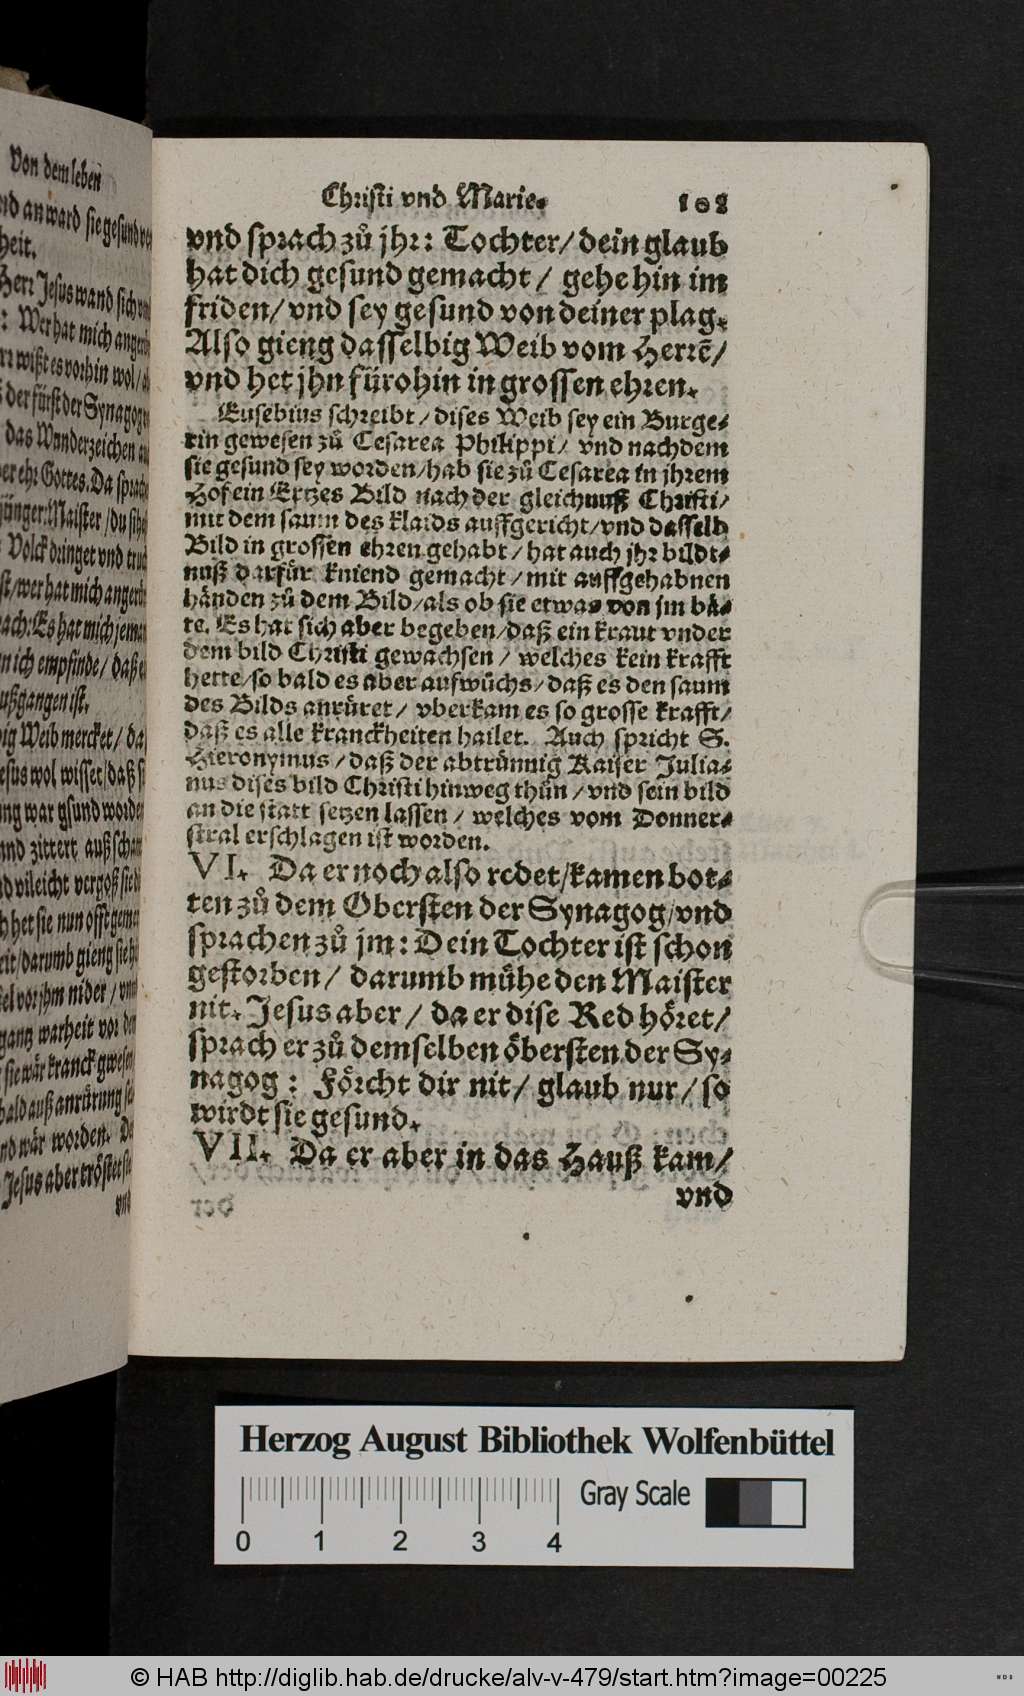 Von dem leben
nd an ward sie gesund
heit.
Herr Jesus wand sich
: Wer hat mich
wißt es vorhin wol/
der fürst der Synagog
das Wunderzeichen
ehr Gottes. Da sprach
jünger: Maister/du
Volck dringet vnd
st/wer hat mich
ach: Es hat mich
n ich empfinde/daß
ußgangen ist.
ig Weib mercket/
esus wol wisset/daß
ng war gsund
nd zittert auß
d vileicht vergoß
h het sie nun offt
eit/darumb gieng sie
el vor jhm nider/
gantz warheit vor
sie wär kranck gwesen
bald auß anrürung
nd wär worden. Da
Jesus aber tröstet sie
vnd
Christi vnd Marie. 108
vnd sprach zů jhr: Tochter/dein glaub
hat dich gesund gemacht/ gehe hin im
friden/ vnd sey gesund von deiner plag.
Also gieng dasselbig Weib vom Herrē/
vnd het jhn fürohin in grossen ehren.
Eusebius schreibt/dises Weib sey ein Burge-
rin gewesen zů Cesarea Philippi/ vnd nachdem
sie gesund sey worden/hab sie zů Cesarea in jhrem
Hof ein Ertzes Bild nach der gleichnuß Christi/
mit dem saum des klaids auffgericht/vnd dasselb
Bild in grossen ehren gehabt/hat auch jhr bildt-
nuß darfür kniend gemacht/mit auffgehabnen
händen zů dem Bild/als ob sie etwas von jm bä-
te. Es hat sich aber begeben/daß ein kraut vnder
dem bild Christi gewachsen/ welches kein krafft
hette/so bald es aber aufwüchs/daß es den saum
des Bilds anrüret/ vberkam es so grosse krafft/
daß es alle kranckheiten hailet. Auch spricht S.
Hieronymus/daß der abtrünnig Kaiser Julia-
nus dises bild Christi hinweg thůn/vnd sein bild
an die statt setzen lassen/ welches vom Donner-
stral erschlagen ist worden.
VI. Da er noch also redet/kamen bot-
ten zů dem Obersten der Synagog/vnd
sprachen zů jm: Dein Tochter ist schon
gestorben/ darumb mühe den Maister
nit. Jesus aber/ da er dise Red höret/
sprach er zů demselben öbersten der Sy-
nagog: Förcht dir nit/ glaub nur/ so
wirdt sie gesund.
VII. Da er aber in das Hauß kam/
vnd
Herzog August Bibliothek Wolfenbüttel
Gray Scale
0 1 2 3 4
© HAB http://diglib.hab.de/drucke/alv-v-479/start.htm?image=00225